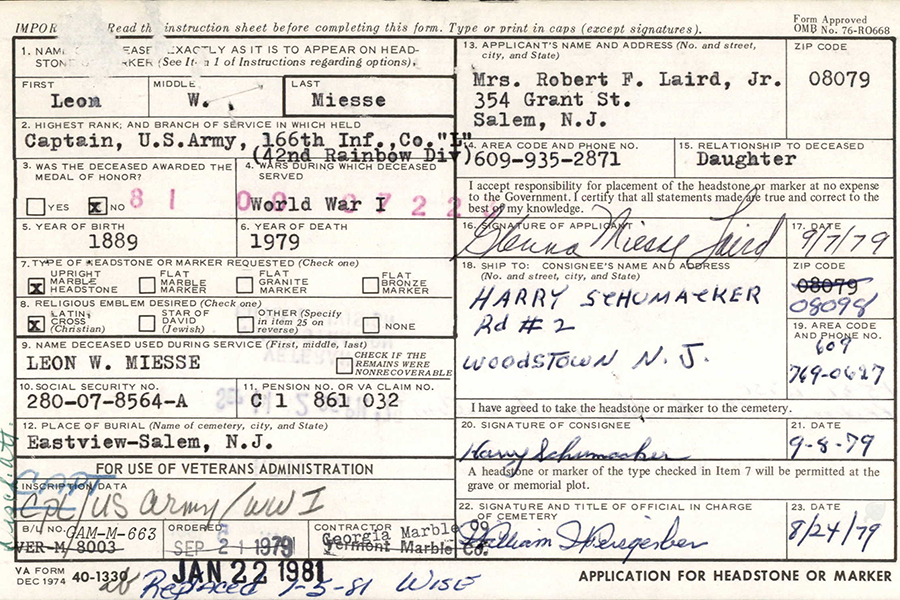 IMPOR Read th instruction sheet before completing this form. Type or print in caps (except signatures).
Form Approved
OMB No. 76-RO668
1. NAM EASE EXACTLY AS IT IS TO APPEAR ON HEAD-
STON RKER (See It 1 of Instructions regarding options).
FIRST
Leon
MIDDLE
W.
LAST
Miesse
2. HIGHEST RANK; AND BRANCH OF SERVICE IN WHICH HELD
Captain, U.S.Army, 166th Inf.,Co."L"
(42nd Rainbow Div)
3. WAS THE DECEASED AWARDED THE
MEDAL OF HONOR?
YES x NO
4. WARS DURING WHICH DECEASED
SERVED
World War I
81 0 722
5. YEAR OF BIRTH
1889
6. YEAR OF DEATH
1979
7. TYPE OF HEADSTONE OR MARKER REQUESTED (Check one)
x UPRIGHT
MARBLE
HEADSTONE
FLAT
MARBLE
MARKER
FLAT
GRANITE
MARKER
FLAT
BRONZE
MARKER
8. RELIGIOUS EMBLEM DESIRED (Check one)
x LATIN
CROSS
(Christian)
STAR OF
DAVID
(Jewish)
OTHER (Specify
in item 25 on
reverse)
NONE
9. NAME DECEASED USED DURING SERVICE (First, middle, last)
LEON W. MIESSE
CHECK IF THE
REMAINS WERE
NONRECOVERABLE
10. SOCIAL SECURITY NO.
280-07-8564-A
11. PENSION NO. OR VA CLAIM NO.
C 1 861 032
12. PLACE OF BURIAL (Name of cemetery, city, and State)
Eastview-Salem, N.J.
FOR USE OF VETERANS ADMINISTRATION
INSCRIPTION DATA
CAPT
Cpl/US Army/WW I
B/L NO.
GAM-M-663
VER-M/8003
ORDERED
SEP 21 1979
CONTRACTOR
Georgia Marble Co
Vermont Marble Co.
VA FORM
DEC 1974
40-1330
JAN 22 1981
Replaced 1-5-81 WISE
13. APPLICANT'S NAME AND ADDRESS (No. and street,
city, and State)
Mrs. Robert F. Laird, Jr.
354 Grant St.
Salem, N.J.
ZIP CODE
08079
14. AREA CODE AND PHONE NO.
609-935-2871
15. RELATIONSHIP TO DECEASED
Daughter
I accept responsibility for placement of the headstone or marker at no expense
to the Government. I certify that all statements made are true and correct to the
best of my knowledge.
16. SIGNATURE OF APPLICANT
Glenna Miesse Laird
17. DATE
9/7/79
18. SHIP TO: CONSIGNEE'S NAME AND ADDRESS
(No. and street, city, and State)
HARRY SCHUMACKER
Rd # 2
WOODSTOWN N.J.
ZIP CODE
08079
08098
19. AREA CODE
AND PHONE NO.
609
769-0627
I have agreed to take the headstone or marker to the cemetery.
20. SIGNATURE OF CONSIGNEE
Harry Schumacker
21. DATE
9-8-79
A headstone or marker of the type checked in Item 7 will be permitted at the
grave or memorial plot.
22. SIGNATURE AND TITLE OF OFFICIAL IN CHARGE
OF CEMETERY
William
23. DATE
8/24/79
APPLICATION FOR HEADSTONE OR MARKER